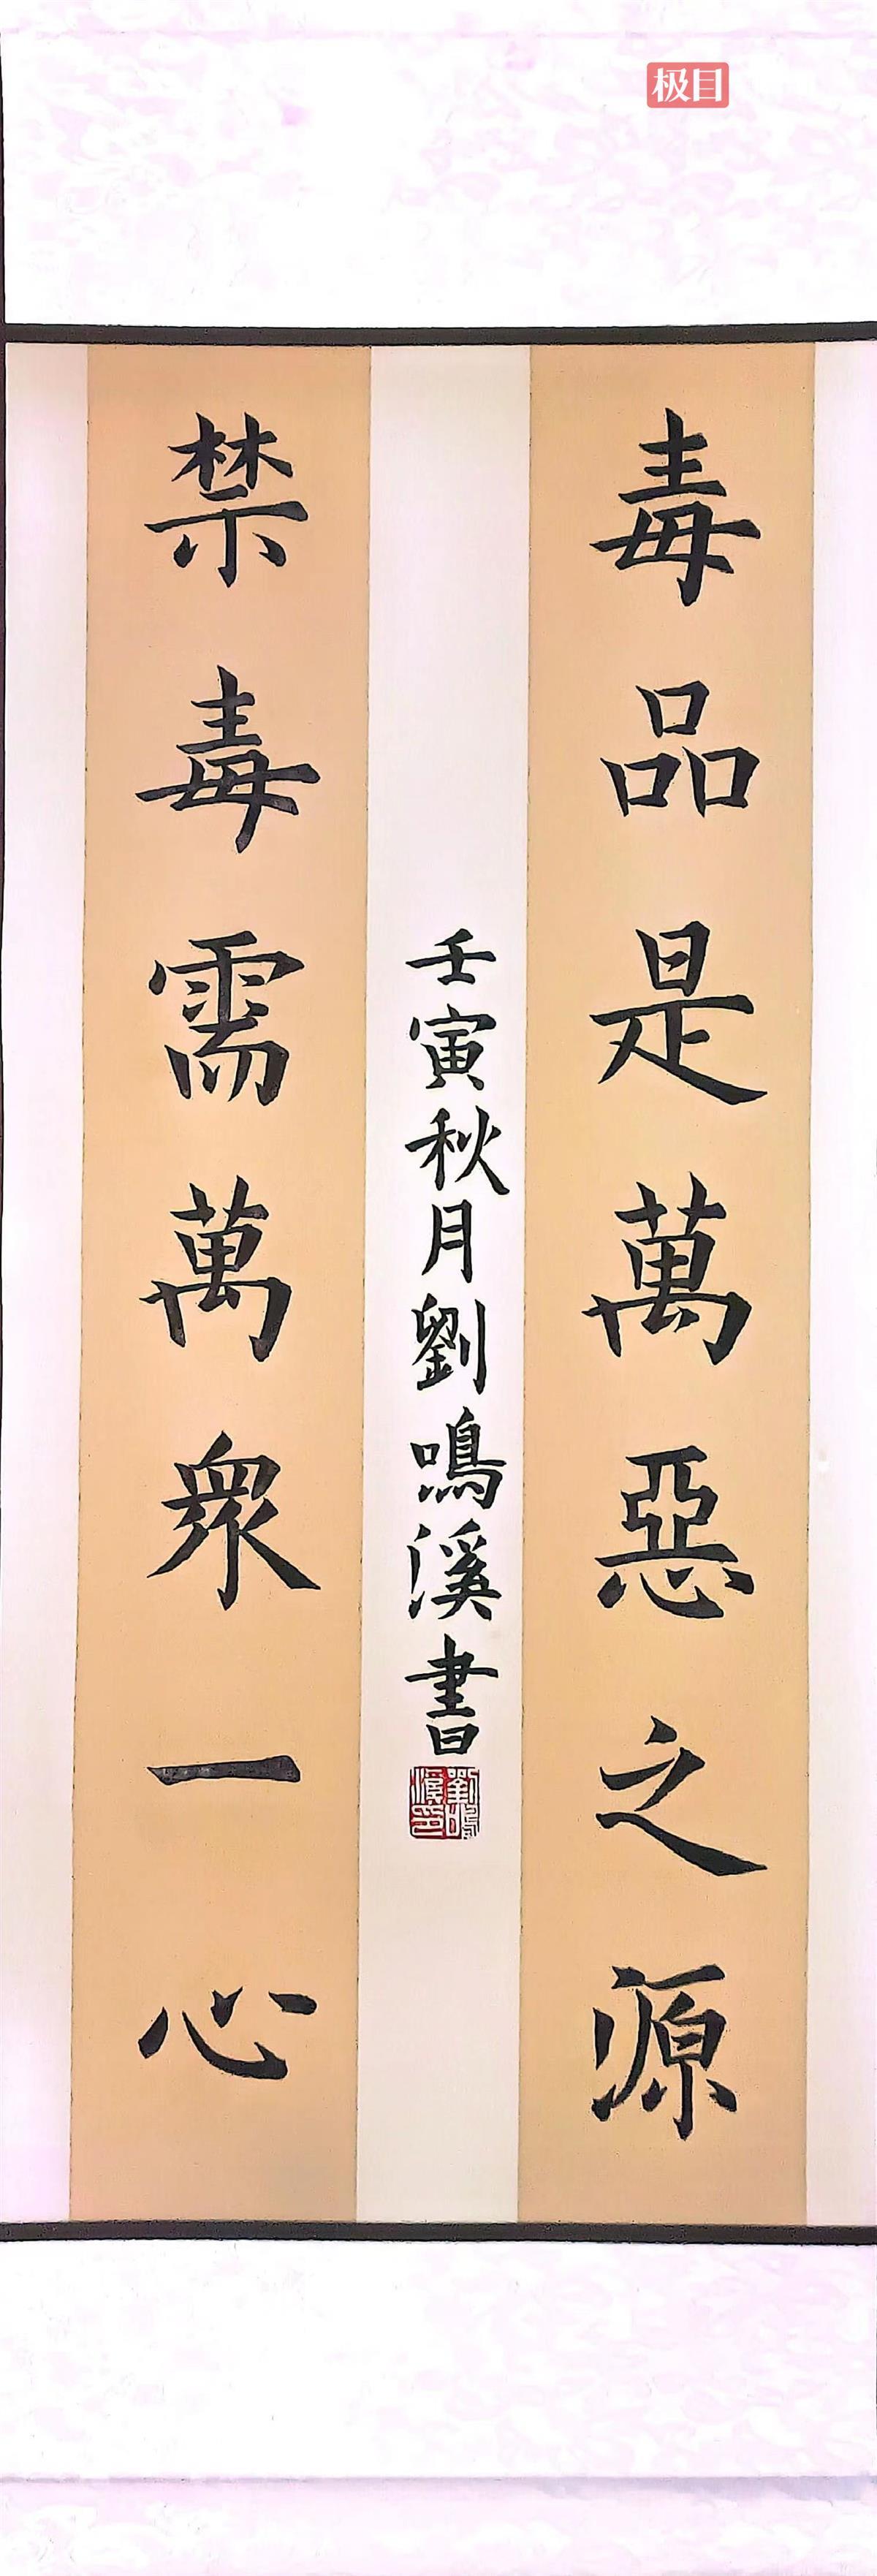 极目
毒品是萬惡之源
禁毒需萬衆一心
壬寅秋月劉鳴溪書
劉鳴溪印